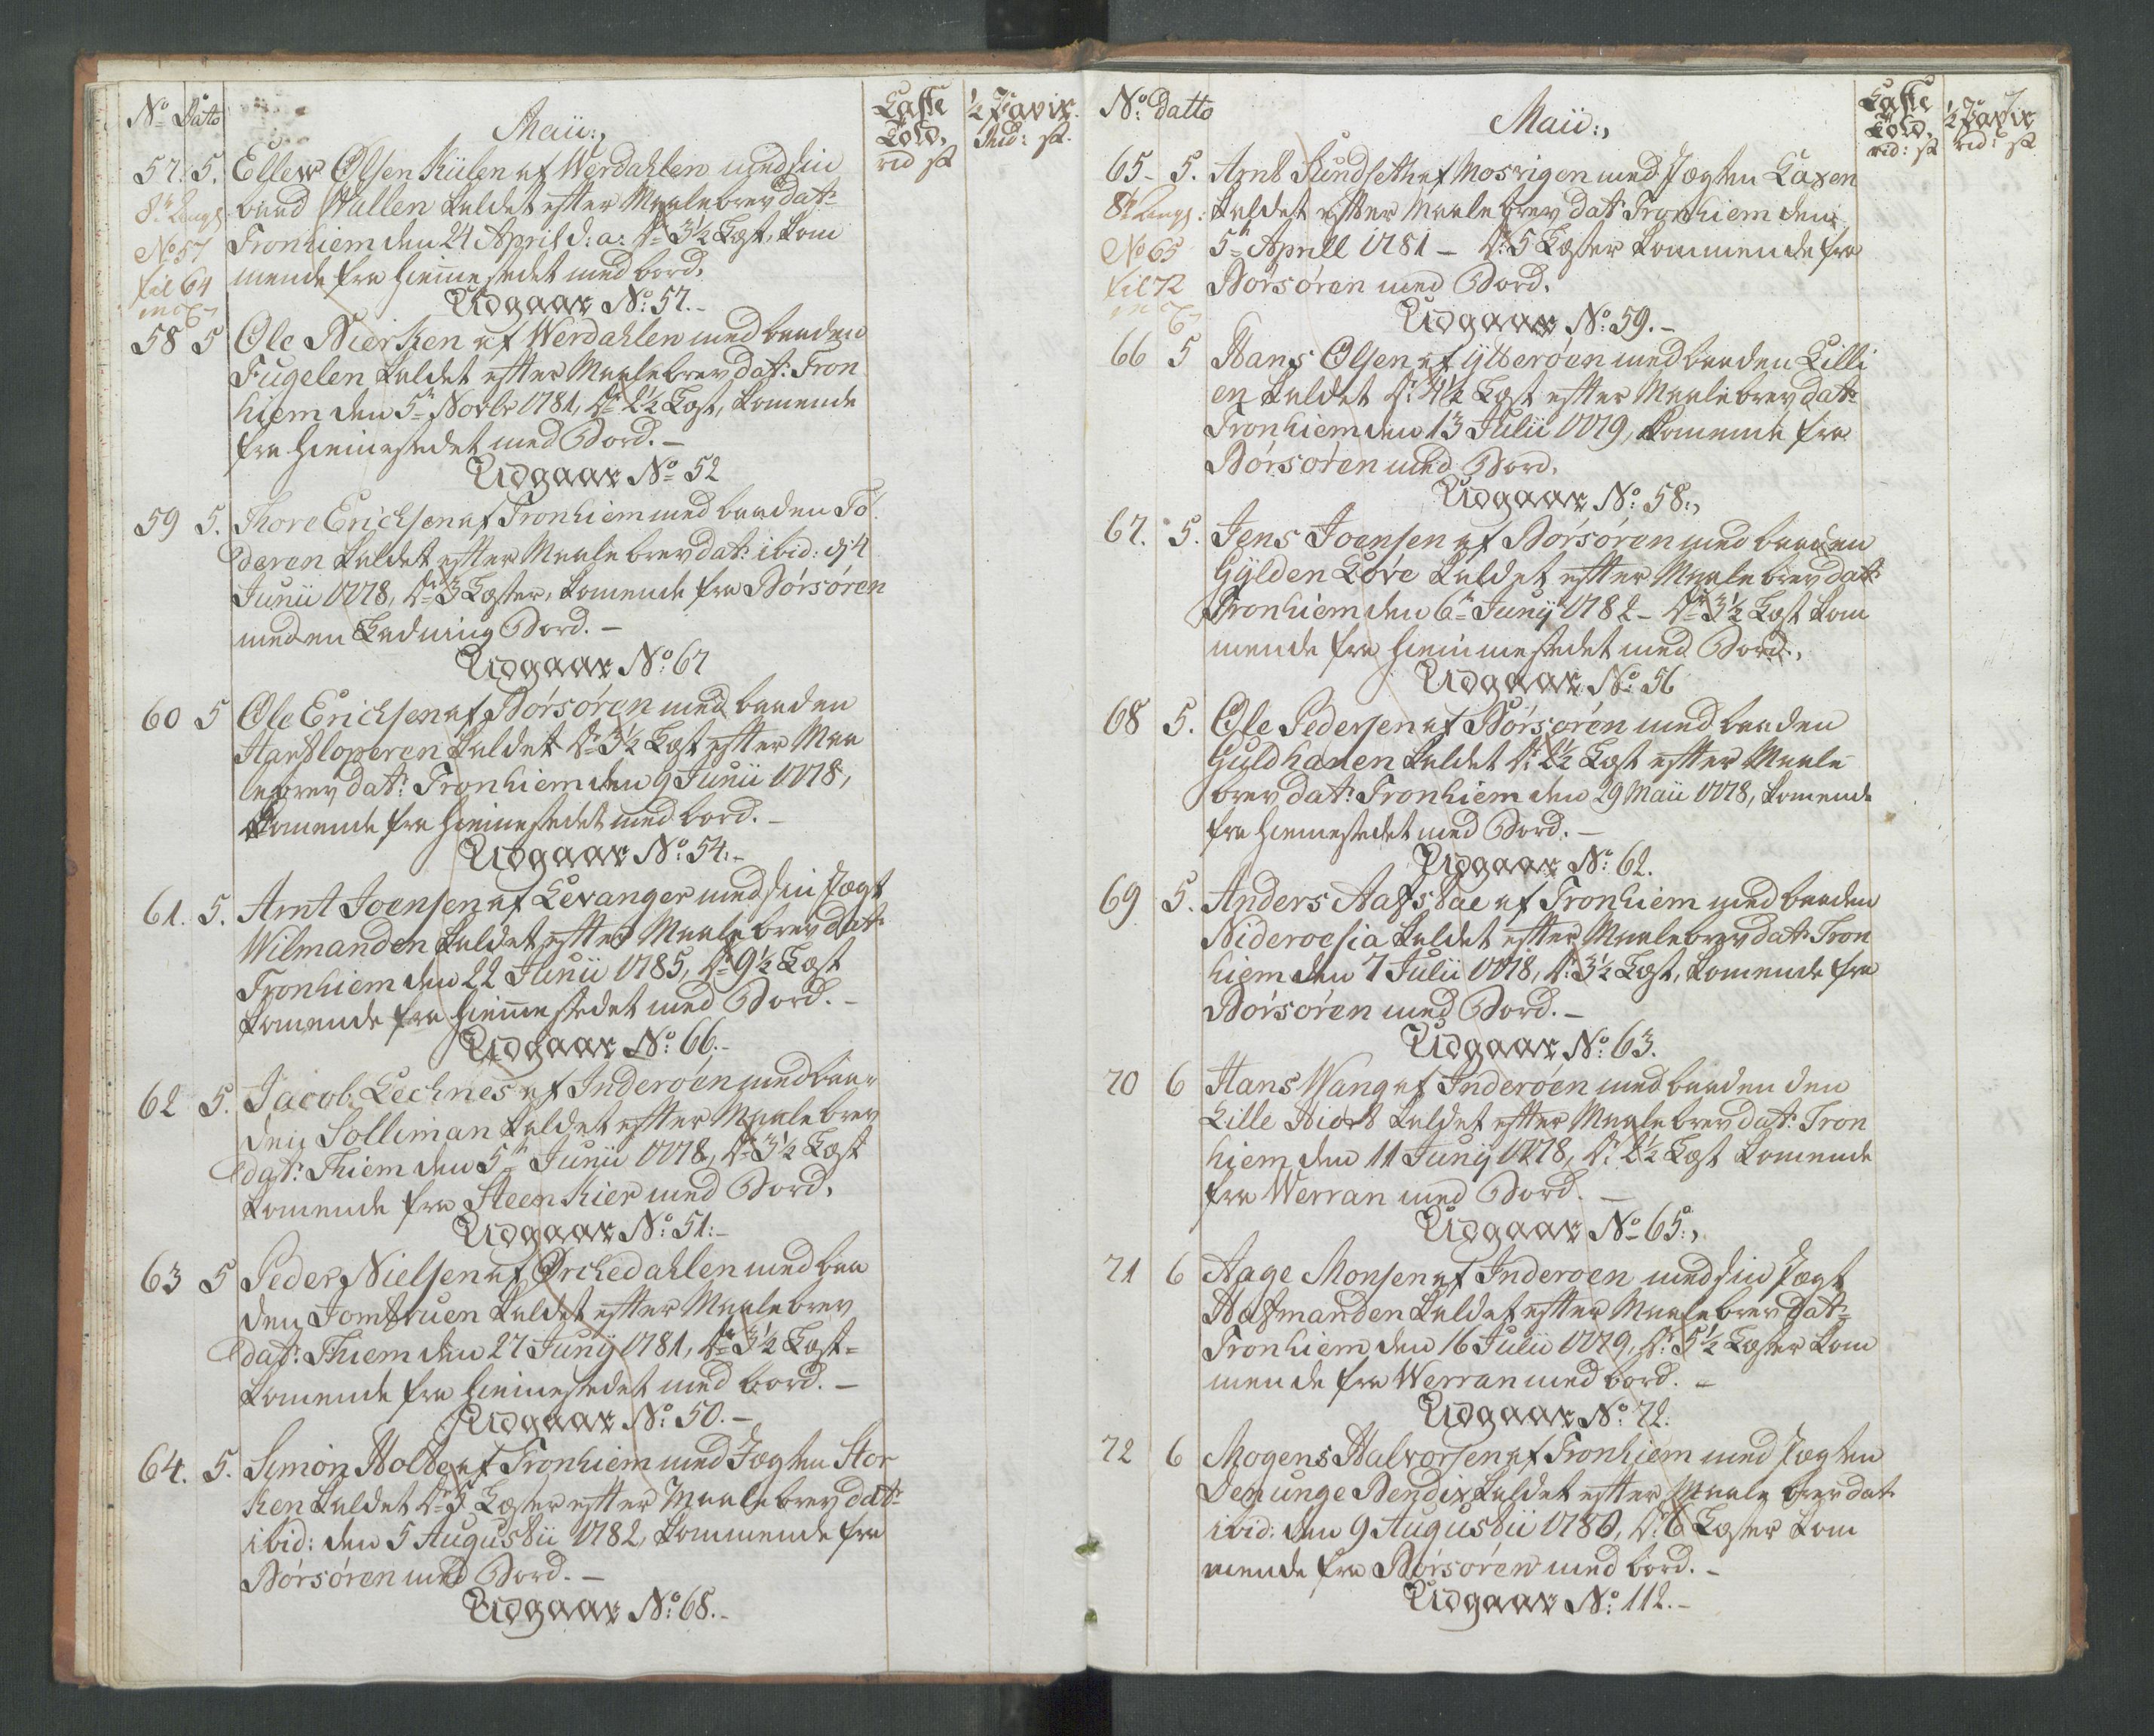 No Dato
Maii:,
Laste
Told,
rd s
½ Part
Rd: s.
57. 5. Ellew Olsen Kulen af Werdahlen med sin
baad Wallen kaldet efter Maalebrev dat:
Tronhiem den 24 April d: a: dr. 3½ Læst, kom
mende fra hiemestedet med bord.
8de Laug
No 57
til 64
Udgaar No: 57.-
58 5 Ole Nierken af Werdahlen med baaden
Fugelen kaldet efter Maalebrev dat: Tron
hiem den 5te Novbr 1781, dr. 2½ Læst, komende
fra hiemestedet med Bord.-
Udgaar No 52
59 5. Thore Erichsen af Tronhiem med baaden
deren kaldet efter Maalebrev dat: ibid: d: 4
Junii 1778, dr. 3 Læster, komende fra Börsören
med en Ladning Bord.-
Udgaar No: 67
60 5 Ole Erichsen af Börsören med baaden
Hartloperen kaldet dr. 3½ Læst efter Maa
lebrev dat: Tronhiem den 9 Junii 1778,
komende fra hiemestedet med bord.-
Udgaar No: 54:-
61. 5. Arnt Joensen af Levanger med sin Jægt
Wilmanden kaldet efter Maalebrev dat:
Tronhiem den 22 Junii 1785, dr. 9½ Læst
komende fra hiemestedet med Bord.-
Udgaar No: 66.-
62 5. Jacob Lechnes af Inderöen med baa-
den Solliman kaldet efter Maalebrev
dat: Thiem den 5te Junii 1778, dr. 3½ Læst
komende fra Steenkier med Bord,
Udgaar No: 51:-
63 5 Peder Nielsen af Orchedahlen med baa
den Jomfruen kaldet efter Maalebrev
dat: Thiem den 27 Junij 1781, dr. 3½ Læst-
komende fra hiemestedet med bord.-
Udgaar No: 50.-
64. 5. Simon Holte af Tronhiem med Jægten Stor
ken kaldet dr. 5 Læster efter Maalebrev dat:
ibid: den 5 Augustii 1782, kommende fra
Börsören med Bord.-
Udgaar No: 68.-
No: datto
Maii:,
Laste
Told,
rd: s
½ Part
rd: s
65- 5. Arnt Sundseth af Mosvigen med Jægten Laxen
kaldet efter Maalebrev dat: Tronhiem den
5te Aprill 1781- dr. 5 Læster kommende fra
Börsören med Bord.
8de Laug:
No 65
til 72
Udgaar No: 59.-
66 5 Hans Olsen af Ytteröen med baaden Lilli
en kaldet dr. 4½ Læst efter Maalebrev dat:
Tronhiem den 13 Julii 1779, komende fra
Börsören med Bord.
Udgaar No: 58:,
67. 5. Jens Joensen af Börsören med baaden
Gylden Löve kaldet efter Maalebrev dat:
Tronhiem den 6te Junij 1782- dr. 3½ Læst kom
mende fra hiemmestedet med Bord.,
Udgaar No: 56
68 5. Ole Pedersen af Börsören med baaden
Guldhanen kaldet dr. 2½ Læst efter Maale
brev dat: Tronhiem den 29 Maii 1778, komende
fra hiemestedet med Bord.-
Udgaar No: 62.
69 5. Anders af Tronhiem med baaden
Niderocsia kaldet efter Maalebrev dat: Tron
hiem den 7 Julii 1778, dr. 3½ Læst, komende fra
Börsören med Bord.-
Udgaar No: 63.
70 6 Hans Wang af Inderöen med baaden den
Lille Hiort kaldet efter Maalebrev dat: Tron
hiem den 11 Junij 1778, dr. 2½ Læst komende
fra Werran med Bord.-
Udgaar No 65:,
71 6 Aage Monsen af Inderoen med sin Jægt
Hafmanden kaldet efter Maalebrev dat:
Tronhiem den 16 Julii 1779, dr. 5½ Læster kom
mende fra Werran med bord.-
Udgaar No: 72.
72 6 Mogens Halvorsen af Tronhiem med Jægten
Den unge Bendix kaldet efter Maale brev dat:
ibid: den 9 Augustii 1780, dr. 6 Læster kom
mende fra Börsören med bord.-
Udgaar No: 112.-